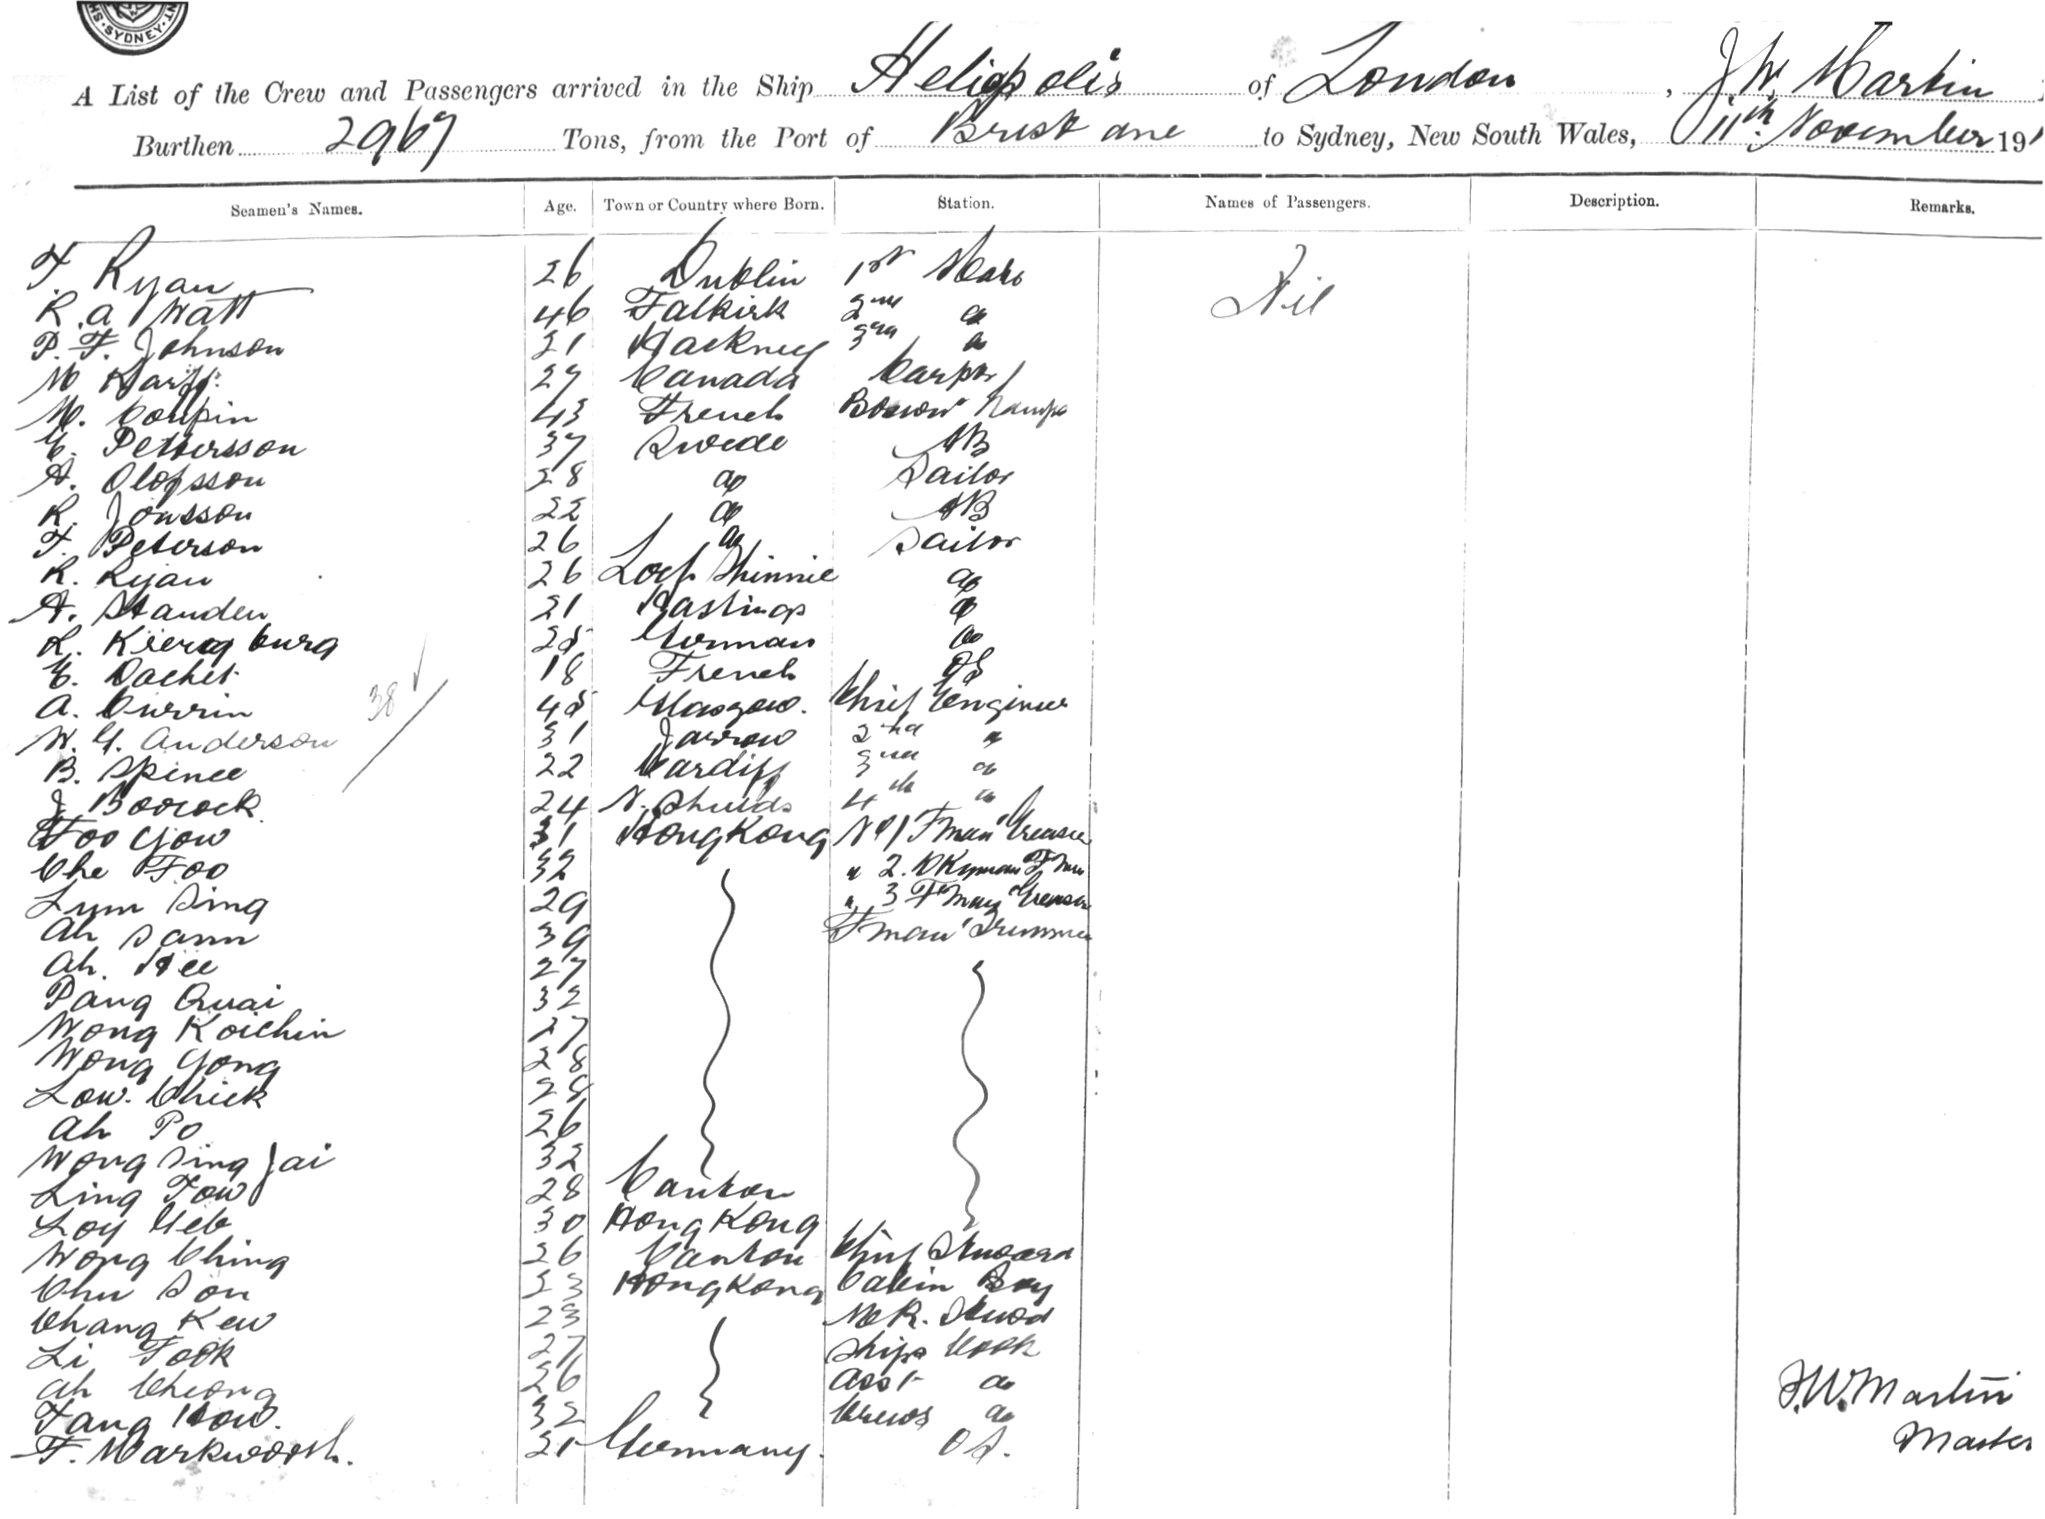 SYDNEY
A List of the Crew and Passengers arrived in the Ship Heliopolis of London, J. W. Martin
Burthen 2967 Tons, from the Port of Brisbane to Sydney, New South Wales, 11th November 191
Seamen's Names. Age. Town or Country where Born. Station. Names of Passengers. Description. Remarks.
F. Ryan 26 Dublin 1st Mate Nil
R. A Watt 46 Falkirk 2nd do
P. F. Johnson 21 Hackney 3rd do
W Harff 27 Canada Carptr
M. Coupin 43 French Bosun Lamps
E. Pettersson 37 Swede AB
A. Olofsson 28 do Sailor
R. Jonsson 22 do AB
F. Peterson 26 do Sailor
R. Ryan 26 do
A. Standen 21 Hastings do
L. 25 German do
E. Dachet 18 French OS
A. Currin 45 Glasgow. Chief Engineer
38
W. G. Anderson 31 Jarrow 2nd "
B. Spinee 22 Cardiff 3rd do
J Boocock 24 N. Shields 4th do
Foo Yow 31 Hong Kong No 1 Fman Greaser
Che Foo 32 " 2. DKyman Fman
Lum Sing 29 " 3 Fman Greaser
Ah Sann 39 Fman Trimmer
Ah. Hee 27
Pang Quai 32
Wong Koichin 27
Wong Yong 28
Low. Chick 28
Ah Po 26
Wong Sing Jai 32
Ling Fow 28 Canton
Loy Yeb 30 Hong Kong
Wong Ching 26 Canton Chief Steward
Chu Son 23 Hong Kong Cabin Boy
Chang Kew 23 M R. Stwod
Li Fook 27 Ships Cook
Ah Cheong 26 Asst do
Fang How. 32 Crews do
F. Markworth. 21 Germany. O S.
J. W. Martin
Master